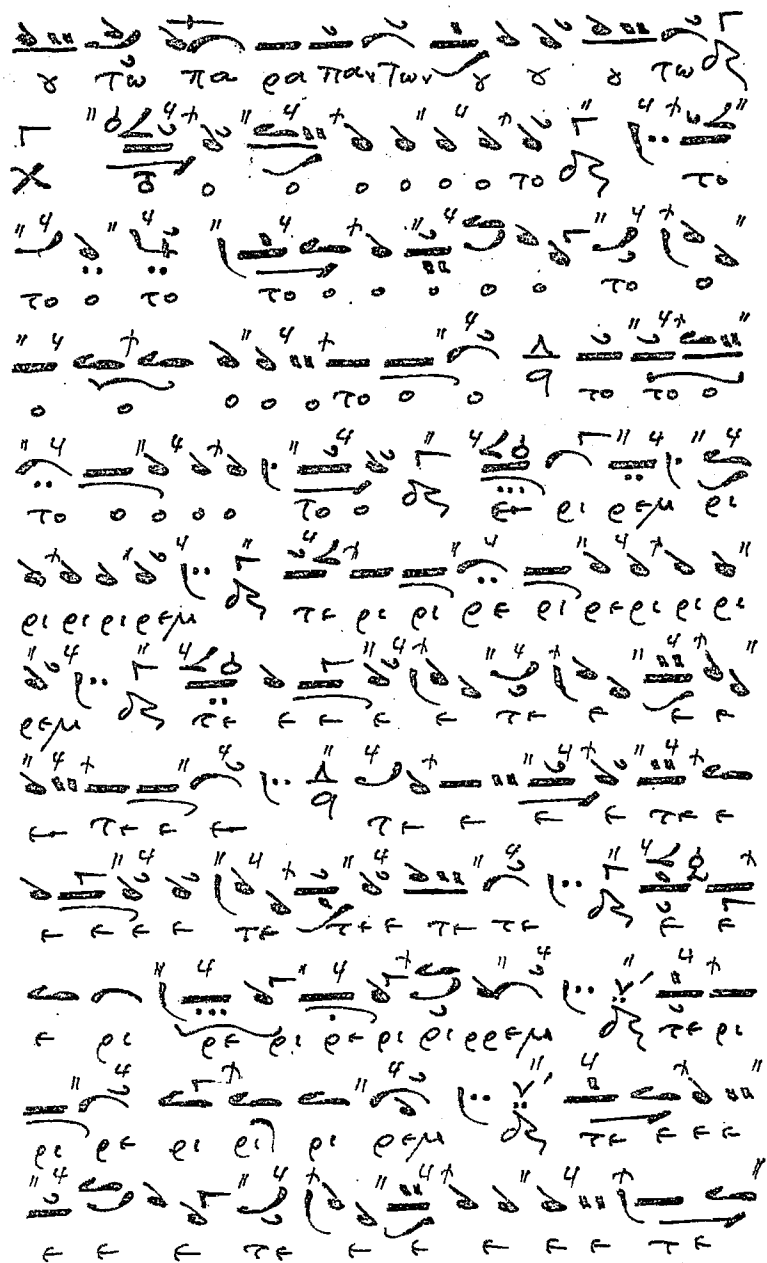 ȣ τω πα ρα παντων ȣ ȣ ȣ τω
το ο ο ο ο ο ο το το
το ο το το ο ο ο ο ο το ο
ο ο ο ο ο το ο ο το το ο
το ο ο ο ο το ο ε ρι ρεμ ρι
ρι ρι ρι ρεμ τε ρι ρι ρε ρι ρε ρι ρι ρι
ρεμ τε ε ε ε ε τε ε ε ε
ε τε ε ε τε ε ε ε τε ε
ε ε ε ε τε τε ε τε τε ε ε
ε ρι ρε ρι ρε ρι ρι ρρεμ τε ρι
ρι ρε ρι ρι ρι ρεμ τε ε ε ε
ε ε ε τε ε ε ε ε ε τε ε